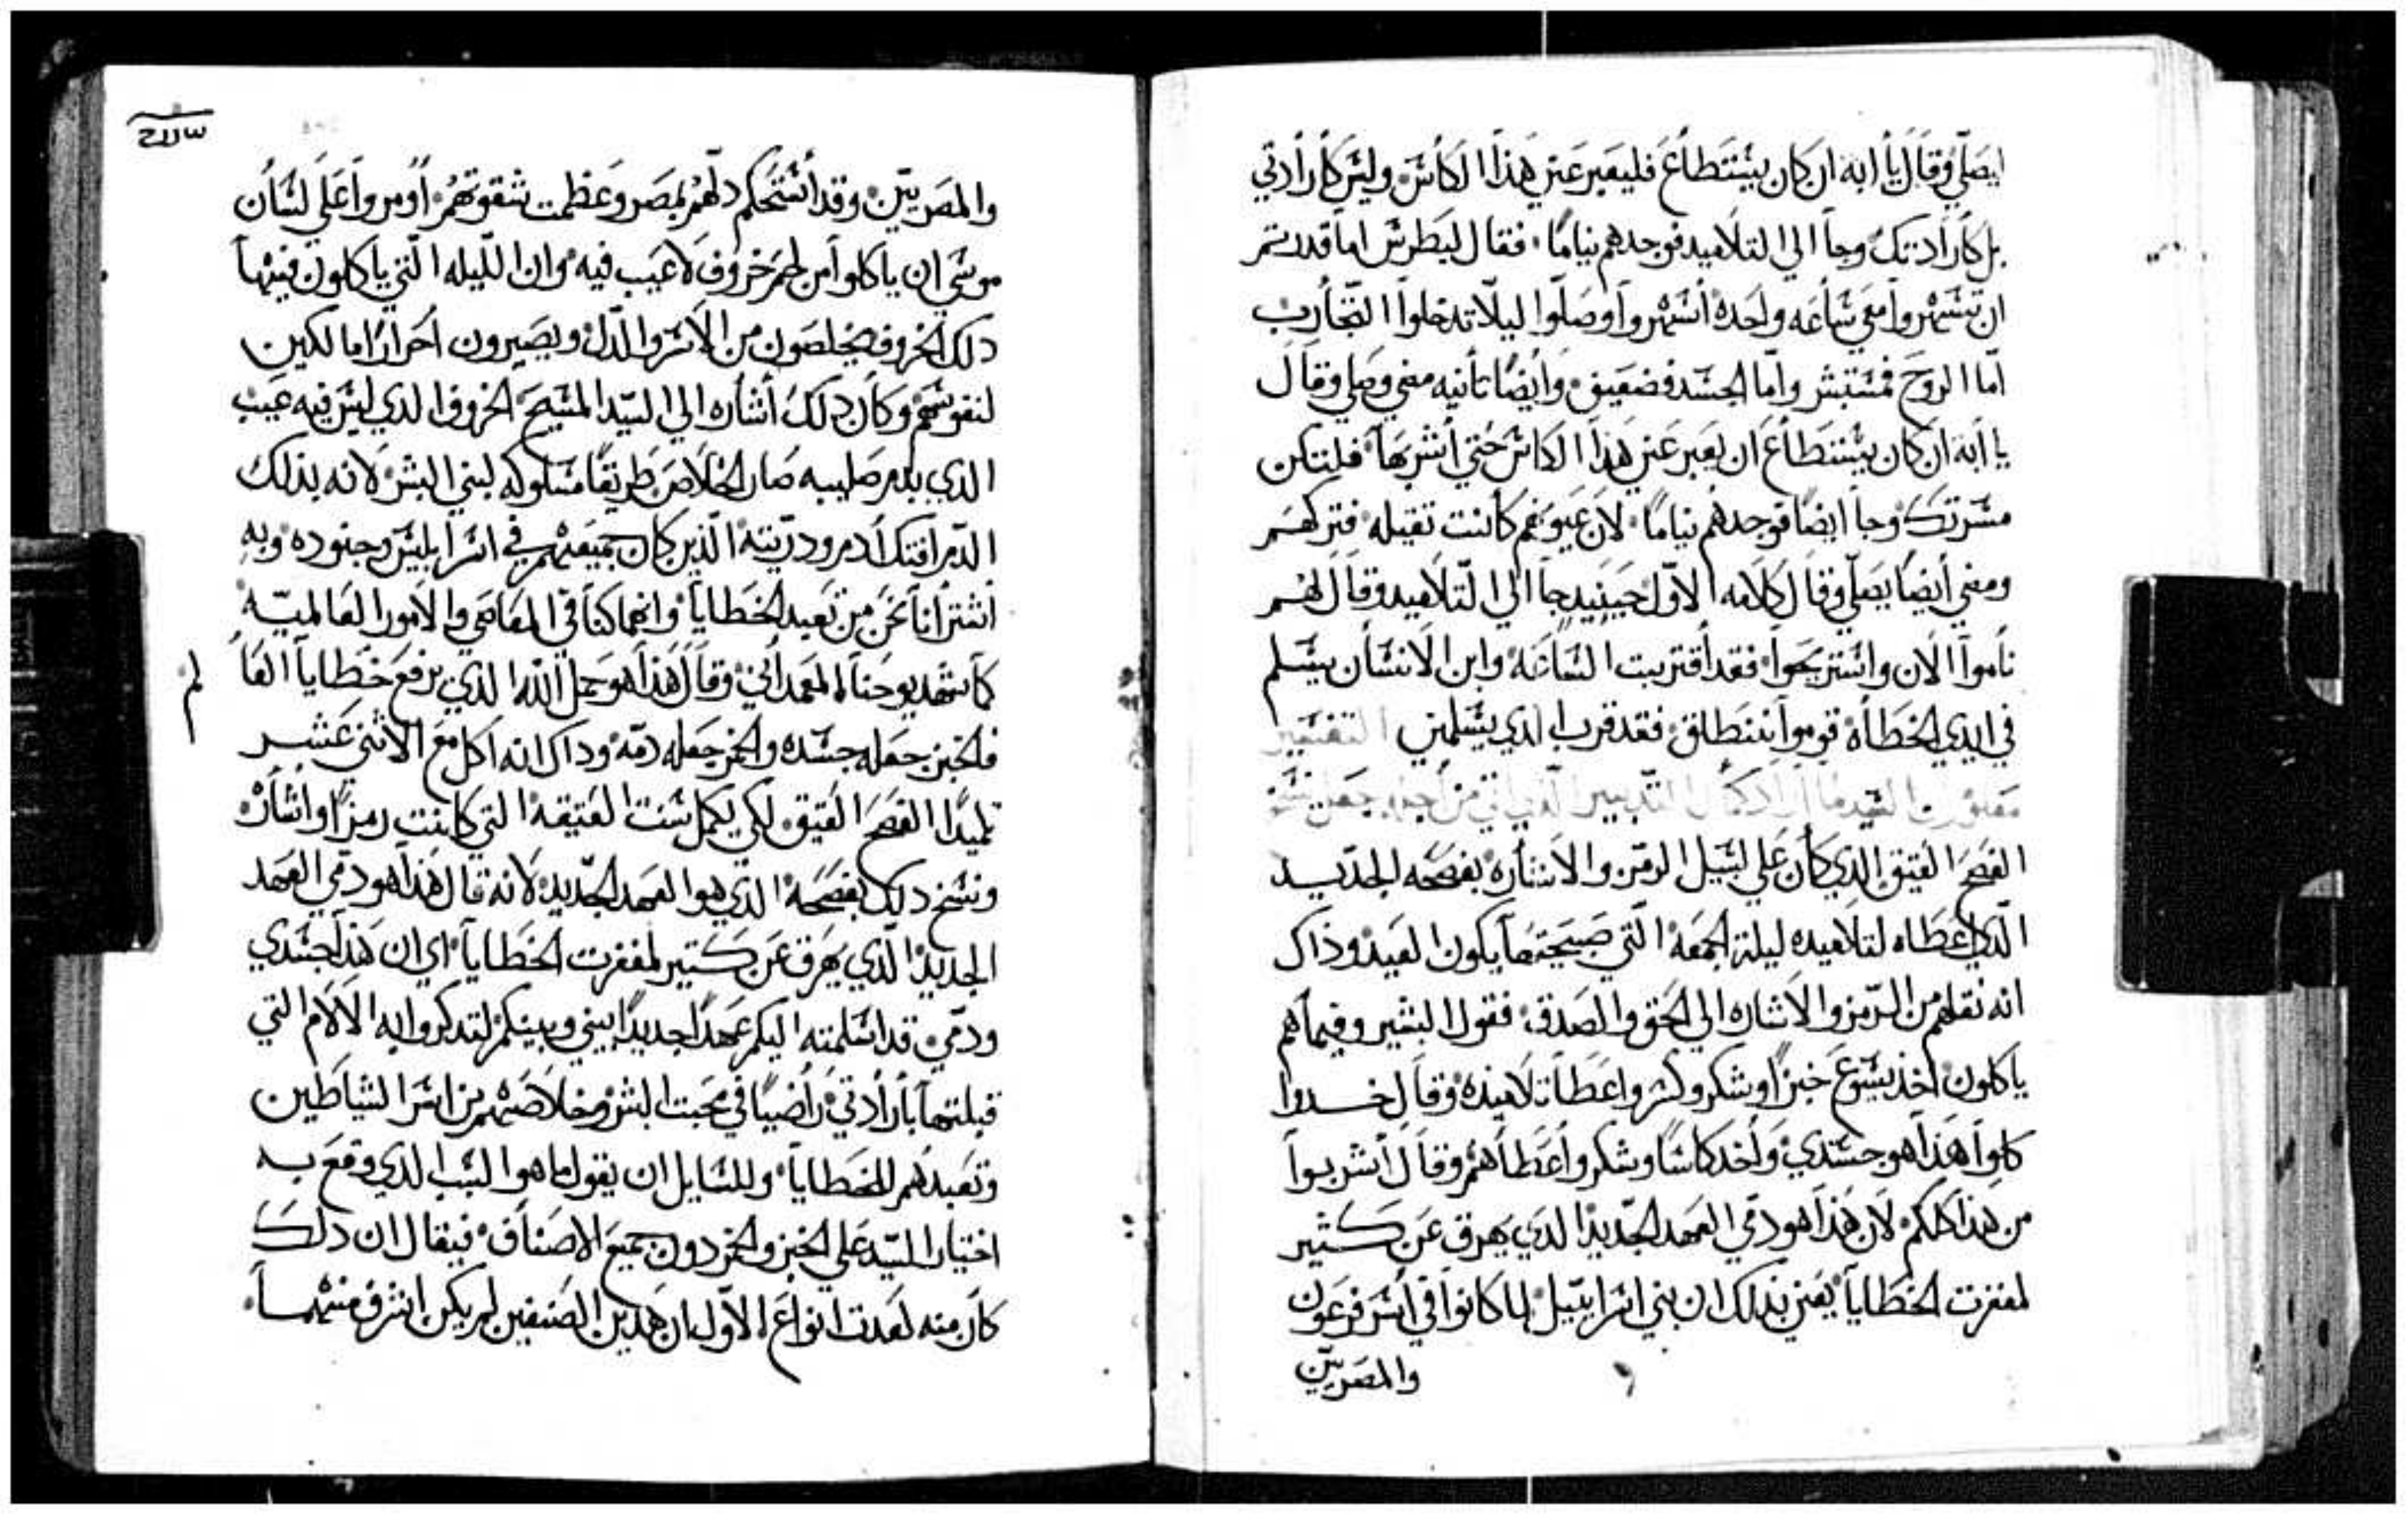 ايصلي وقال يا ابه ان كان يستطاع فليعبر عني هذا الكاس وليس كارادتي
بل كارادتك وجا الي التلاميد فوجدهم نياما فقال لبطرس اما قدرتم
ان تسهروا معي ساعه واحده اسهروا وصلوا ليلا تدخلوا التجارب
اما الروح فمستبشر واما الجسد فضعيف وايضا تانيه مضي وصلي وقال
يا ابه ان كان يستطاع ان يعبر عني هذا الكاس حتي اشربها فلتكن
مسرتك وجا ايضا فوجدهم نياما لان عيونهم كانت تقيله فتركهم
ومضي ايضا يصلي وقال كلامه الاول حينيد جا الي التلاميد وقال لهم
ناموا الان واستريحوا فقد اقتربت الساعه وابن الانسان يسلم
في ايدي الخطاه قوموا ننطلق فقد قرب الدي يسلمني التفسير
السيد لما اراد كمال التدبير الدي من اجله جعل نسخ
الفصح العتيق الدي كان علي سبيل الرمز والاشاره بفصحه الجديد
الدي اعطاه لتلاميده ليلة الجمعه التي صبيحتها يكون العيد وذاك
انه نقلهم من الرمز والاشاره الي الحق والصدق فقول البشير وفيما هم
ياكلون اخد يسوع خبزا وشكر وكسر واعطا تلاميده وقال خدوا
كلوا هذا هو جسدي واخد كاسا وشكر واعطاهم وقال اشربوا
من هذا كلكم لان هذا هو دمي العهد الجديد الدي يهرق عن كثير
لمغفرت الخطايا يعني بدلك ان بني اسراييل لما كانوا في اسر فرعون
والمصريين
والمصريين وقد استحكم دلهم بمصر وعظمت شقوتهم اومروا علي لسان
موسي ان ياكلوا من لحم خروف لا عيب فيه وان الليله التي ياكلون فيها
دلك الخروف يخلصون من الاسر والدل ويصيرون احرارا مالكين
لنفوسهم وكان دلك اشاره الي السيد المسيح الخروف الدي ليس فيه عيب
الدي بدم صليبه صار الخلاص طريقا مسلوكه لبني البشر لانه بذلك
الدم افتك ادم ودريته الذين كان جميعهم في اسر ابليس وجنوده وبه
اشترانا نحن من تعبد الخطايا وانهماكنا في المعاصي والامور العالميه
كما شهد يوحنا المعمداني وقال هذا هو حمل الله الذي يرفع خطايا العا
لم
فالخبز جعله جسده والخمر جعله دمه وداك انه اكل مع الاثني عشر
تلميدا الفصح العتيق لكي يكمل سنت العتيقه التي كانت رمزا واشاره
ونسخ دلك بفصحه الذي هو العهد الجديد لانه قال هذا هو دمي العهد
الجديد الذي يهرق عن كتير لمغفرت الخطايا اي ان هذا جسدي
ودمي قد اسلمته اليكم عهدا جديدا بيني وبينكم لتدكروا به الالام التي
قبلتها بارادتي راضيا في محبت البشر وخلاصهم من اسر الشياطين
وتعبدهم للخطايا وللسايل ان يقول ما هو السبب الدي وقع به
اختيار السيد علي الخبز والخمر دون جميع الاصناف فيقال ان دلك
كان منه لعدت انواع الاول ان هدين الصنفين لم يكن اشرف منهما